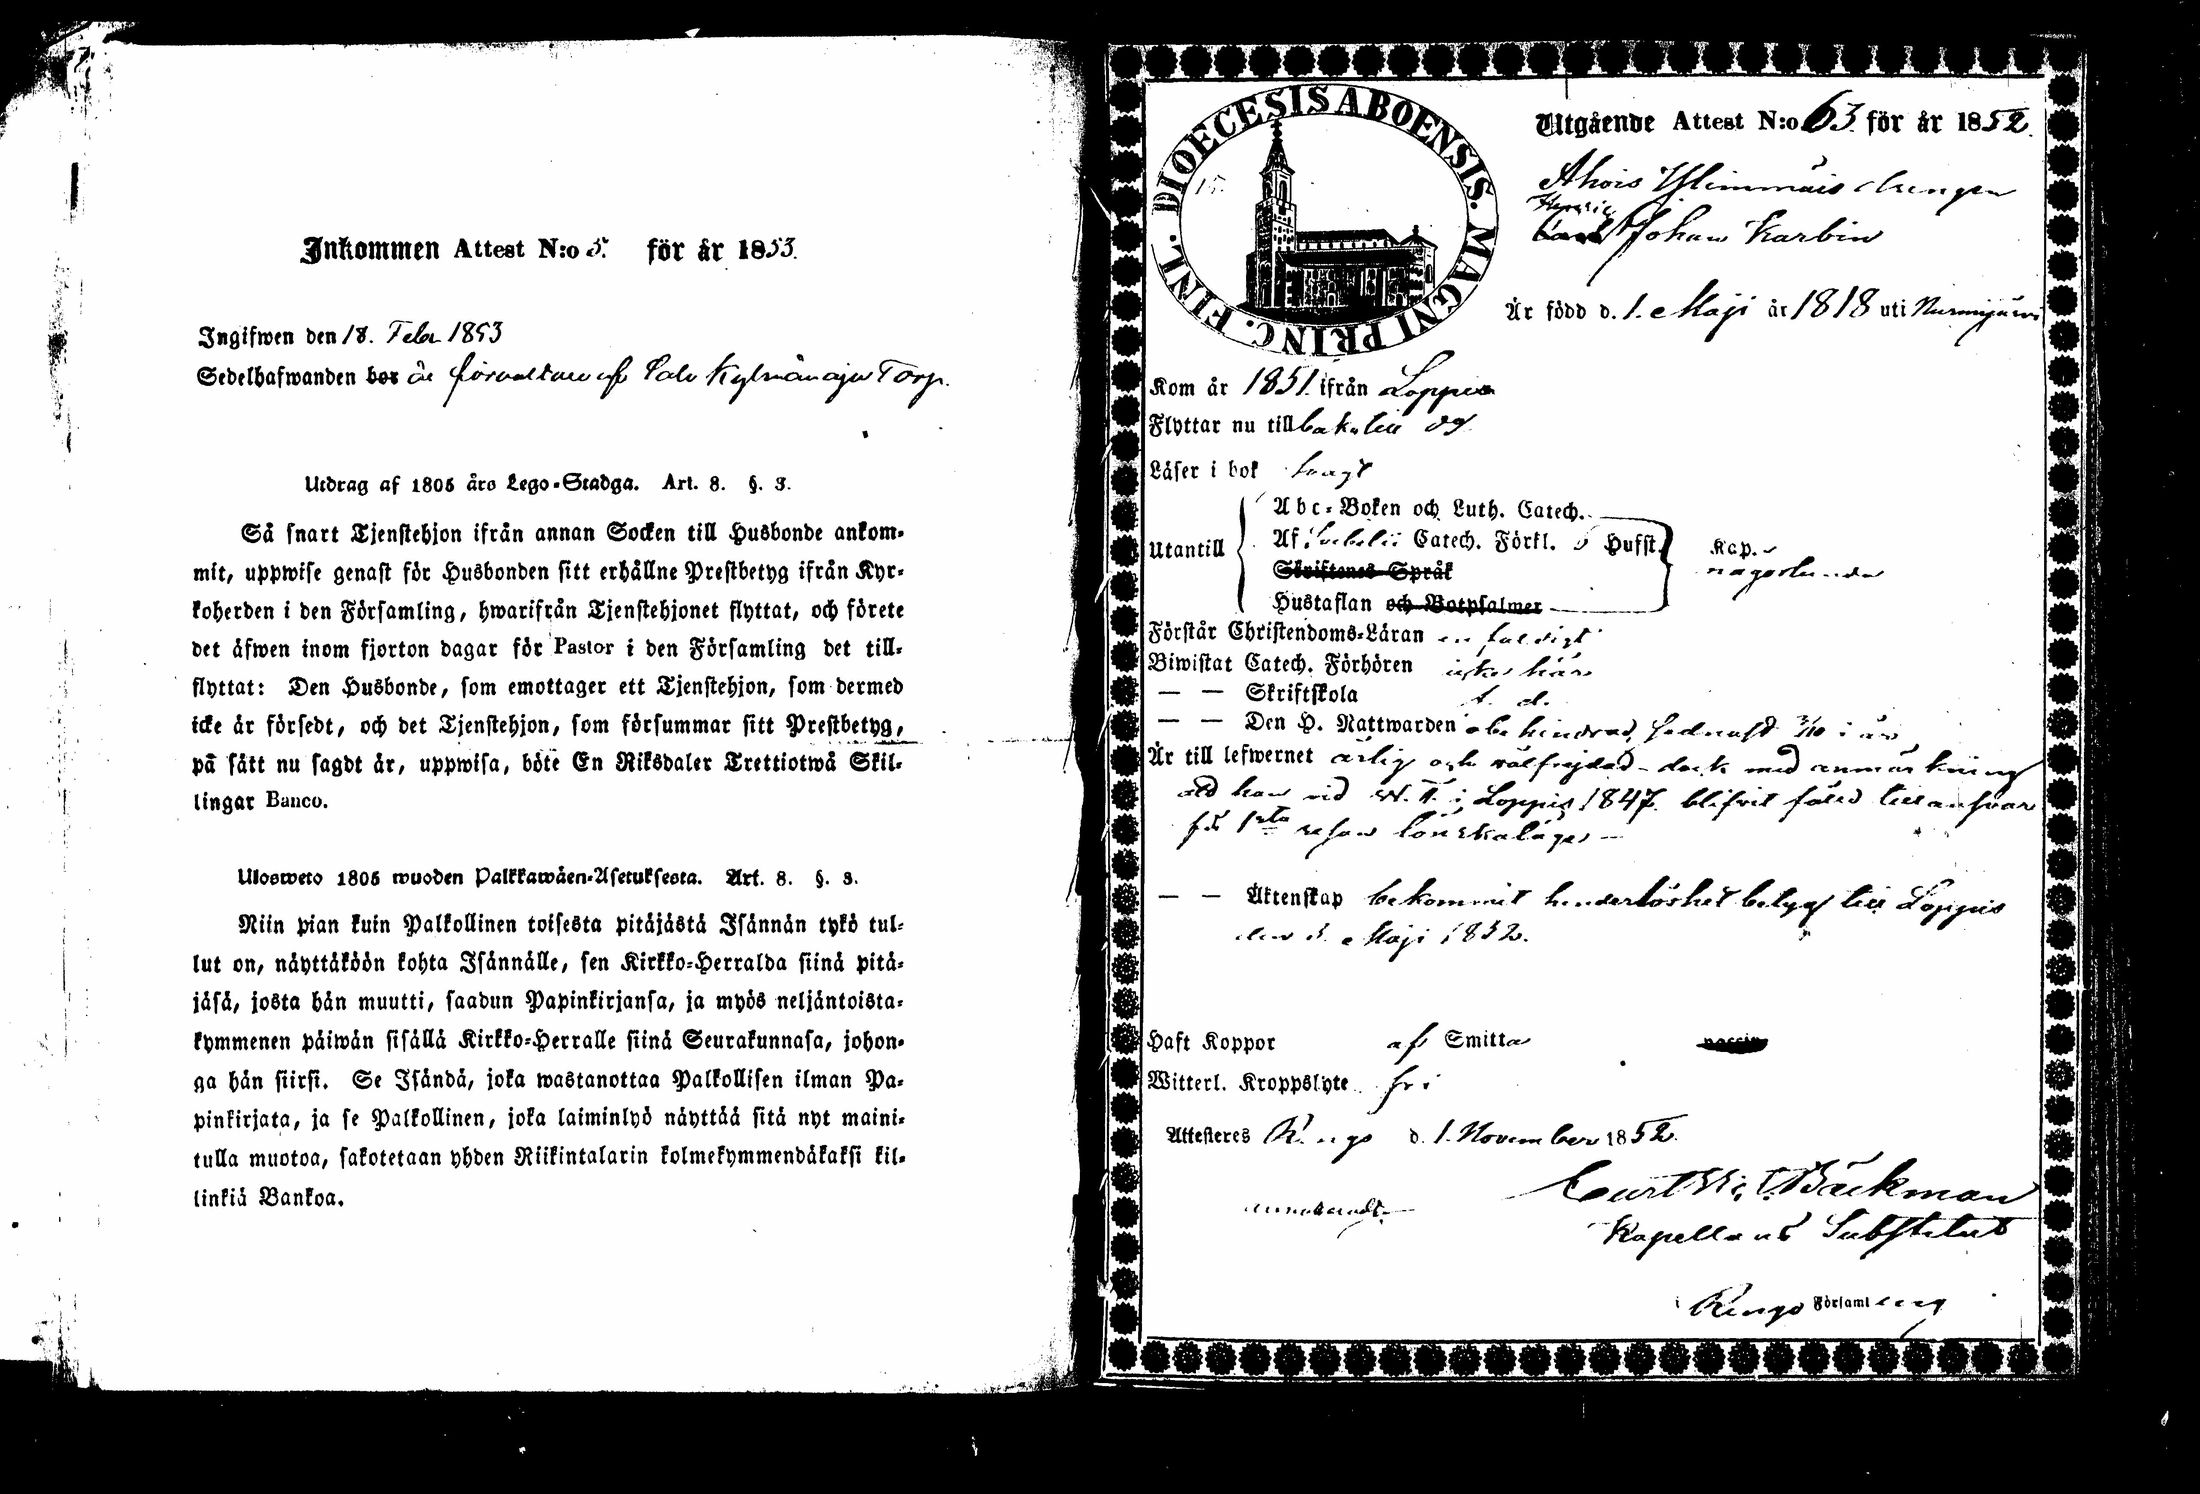 Inkommen Attest N:o 5. för år 1853.
Ingifwen den 18. Febr 1853
Sedelhafwanden bor är förvaltare af Kylmänoja Torp.
Utdrag af 1805 års Lego-Stadga. Art. 8. §. 3.
Så snart Tjenstehjon ifrån annan Socken till Husbonde ankom-
mit, uppwise genast för Husbonden sitt erhållne Prestbetyg ifrån Kyr-
koherden i den Församling, hwarifrån Tjenstehjonet flyttat, och förete
det äfwen inom fjorton dagar för Pastor i den Församling det till-
flyttat: Den Husbonde, som emottager ett Tjenstehjon, som dermed
icke är försedt, och det Tjenstehjon, som försummar sitt Prestbetyg,
på sätt nu sagdt är, uppwisa, böte En Riksdaler Trettiotwå Skil-
lingar Banco.
Ulosweto 1805 wuoden Palkkawäen-Asetuksesta. Art. 8. §. 3.
Niin pian kuin Palkollinen toisesta pitäjästä Isännän tykö tul-
lut on, näyttäköön kohta Isännälle, sen Kirkko-Herralda siinä pitä-
jäsä, josta hän muutti, saadun Papinkirjansa, ja myös neljäntoista-
kymmenen päiwän sisällä Kirkko-Herralle siinä Seurakunnasa, johon-
ga hän siirsi. Se Isändä, joka wastanottaa Palkollisen ilman Pa-
pinkirjata, ja se Palkollinen, joka laiminlyö näyttää sitä nyt maini-
tulla muotoa, sakotetaan yhden Riikintalarin kolmekymmendäkaksi kil-
linkiä Bankoa.
DIOECESIS ABOENSIS. MAGNI PRINC. FINL.
Utgående Attest N:o 63. för år 1852.
Ahois drengen
Henric
Johan Karbin
Är född d. 1. Maji år 1818 uti Nurmijärvi
Kom år 1851. ifrån Loppis
Flyttar nu tillbaka till dg
Läser i bok svagt
Utantill
Abc-Boken och Luth. Catech.
Af Svebelii Catech. Förkl. 5 Hufst.
Skriftenes Språk
Hustaflan och Botpsalmer
Kap.
någorlunda
Förstår Christendoms-Läran enfaldigt
Biwistat Catech. Förhören icke här
— — Skriftskola t. d.
— — Den H. Nattwarden obehindrad, sednast 3/10 i år
Är till lefwernet ärlig och välfrejdad – dock med anmärkning
att han vid W. T. i Loppis 1847. blifvit fäld till ansvar
för 1sta resan lönskaläge –
— — Äktenskap bekommit hinderlöshet betyg till Loppis
den 5. Maji 1852.
Haft Koppor af Smitta
Witterl. Kroppslyte fri
Attesteres Rengo d. 1. November 1852.
Bäckman
Kapellans Substitut
i Rengo Församling